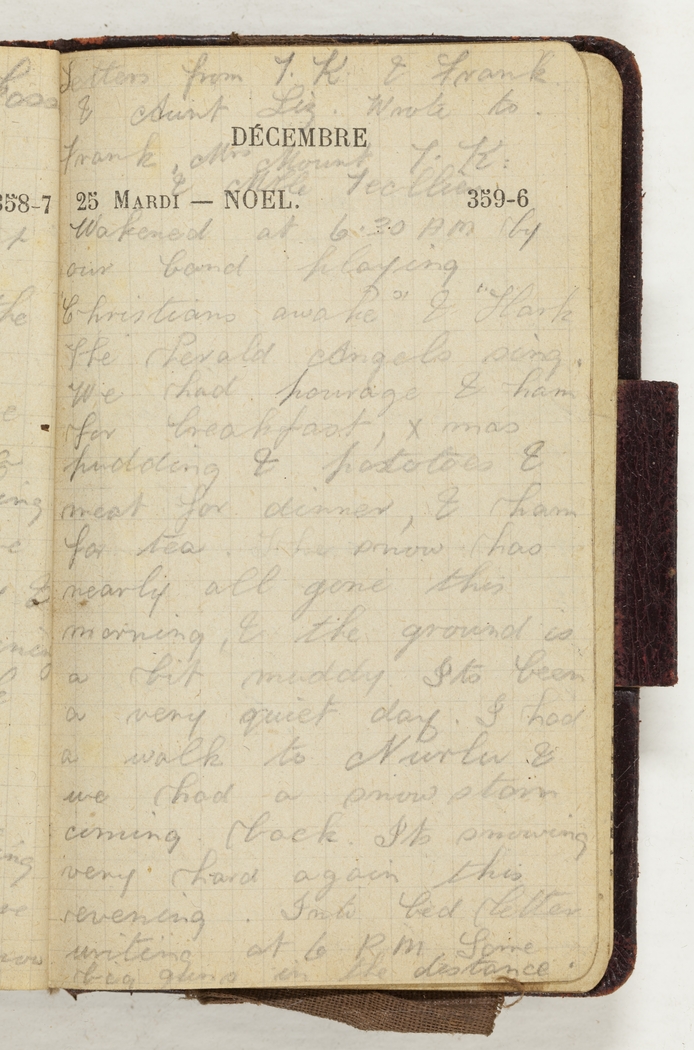 Letters from J. K. & Frank
& Aunt Liz. Wrote to
DÉCEMBRE
Frank, Mrs Mount J. K.
& Mlle
25 MARDI — NOEL. 359-6
Wakened at 6.30 AM by
our band playing
"Christians awake" & "Hark
the herald Angels sing.
We had pourage & ham
for breakfast, x mas
pudding & potatoes &
meat for dinner, & ham
for tea. The snow has
nearly all gone this
morning, & the ground is
a bit muddy Its been
a very quiet day. I had
a walk to Nurlu &
we had a snow storm
coming back. Its snowing
very hard again this
evening. Into bed letter
writing at 6 P.M. Some
big guns in the distance.
358-7